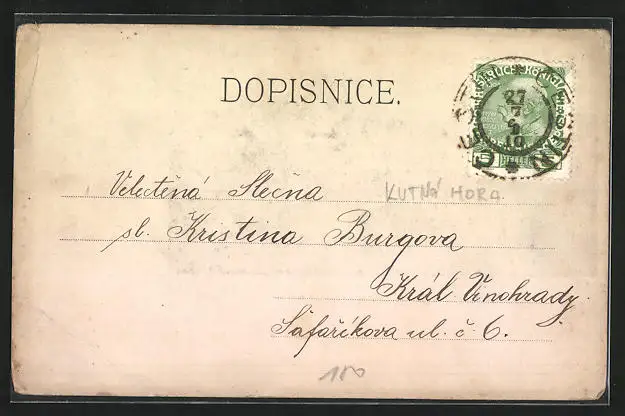 DOPISNICE.
27
7
10
Velectěná Slečna
KUTNÁ HORA
sl. Kristina Burgova
Král. Vinohrady.
Šafaříkova ul. č. 6.
180